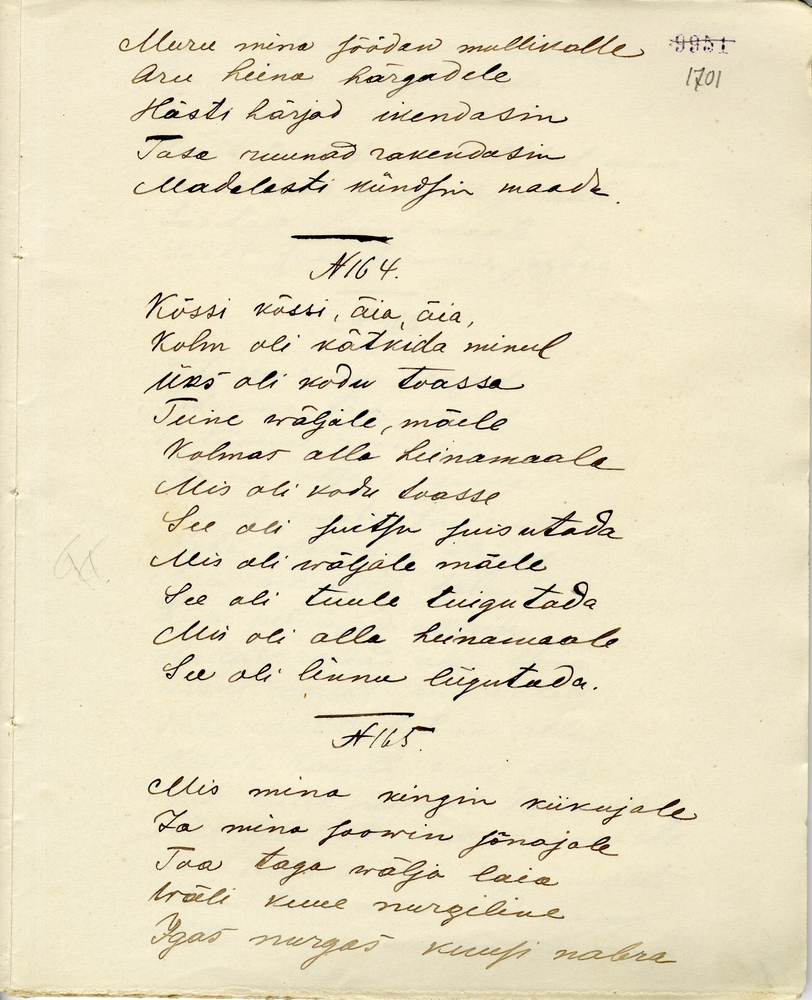 Muru mina söödan mullikalle
9951
1701
Aru heina härgadele
Hästi härjad ikendasin
Tasa ruunad rakendasin
Madalasti kündsin maada.
N 164.
Kõssi kõssi, äia, äia,
Kolm oli kätkida minul
Üks oli kodu toassa
Teine wäljale, mäele
Kolmas alla heinamaale
Mis oli kodu toasse
See oli suitsu suisutada
Mis oli wäljale mäele
See oli tuule tuigutada
Mis oli alla heinamaale
See oli linnu liigutada.
N 165.
Mis mina kingin kiikujale
Ja mina soowin sõnajale
Toa taga wälja laia
Wäli kuue nurgiline
Igas nurgas kuusi nabra